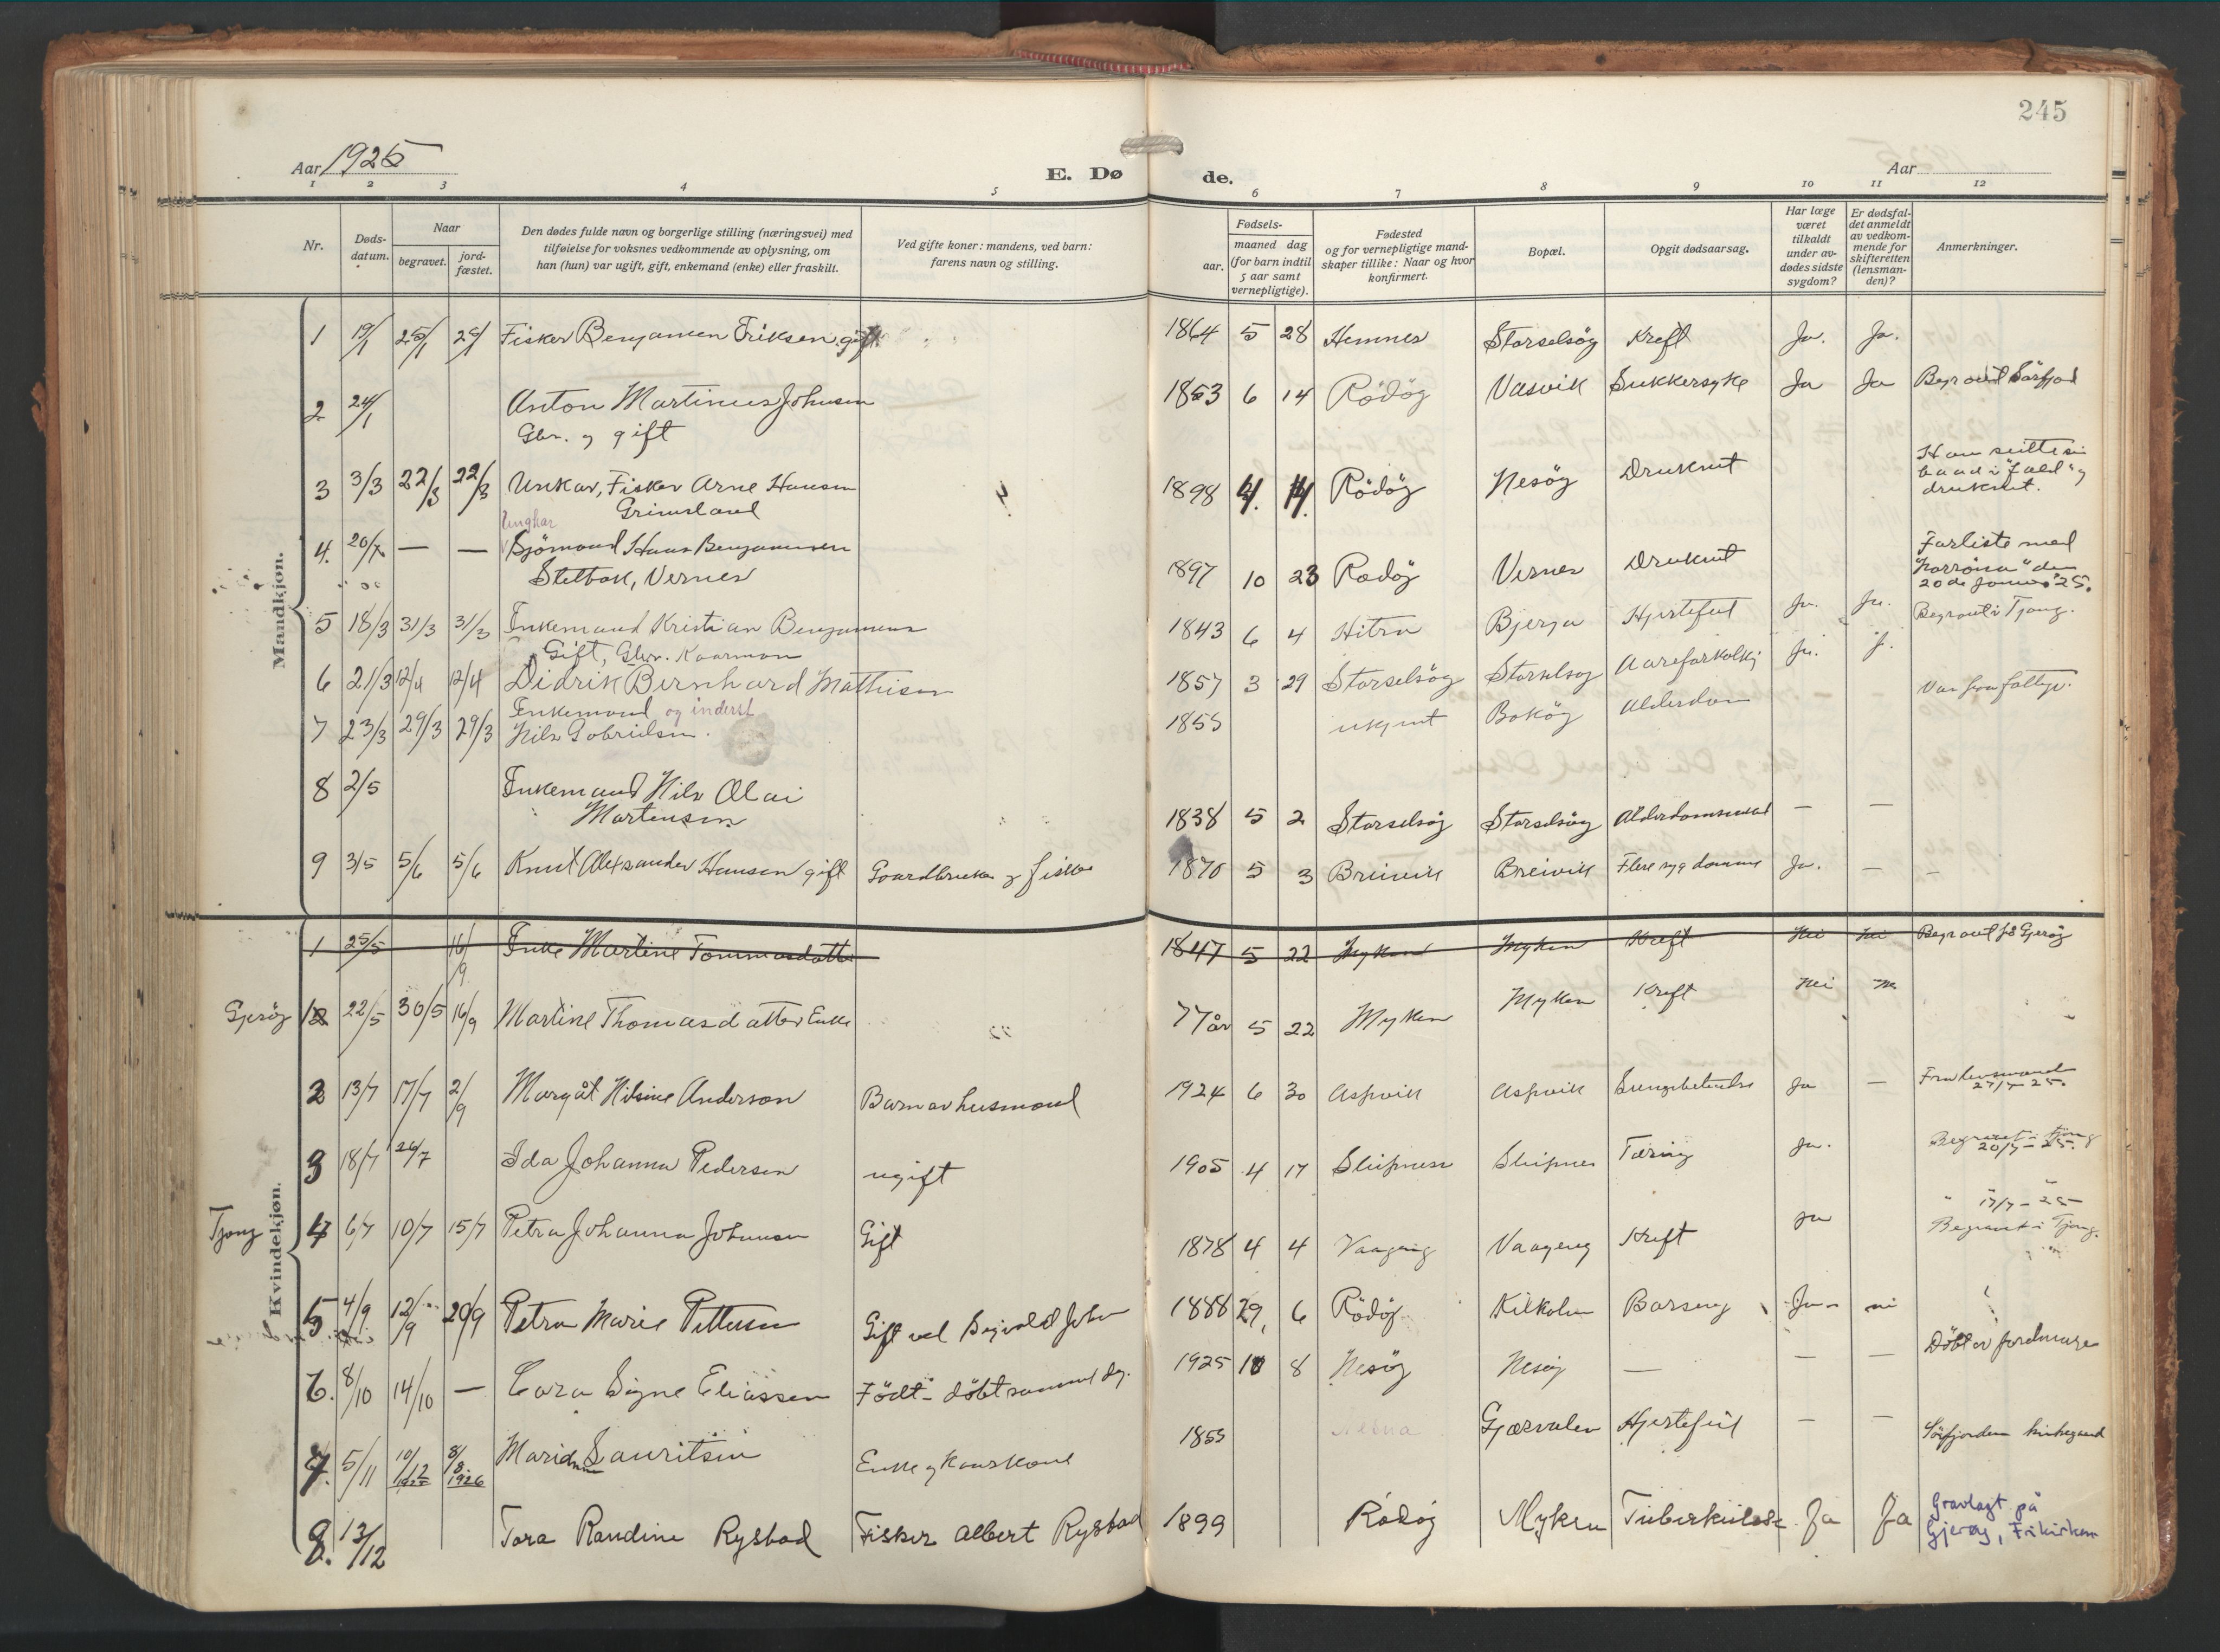 245
Aar 1925
E. Døde.
Aar
1 2 3 4 5 6 7 8 9 10 11 12
Nr.
Døds-datum.
Naar
begravet.
jord-fæstet.
Den dødes fulde navn og borgerlige stilling (næringsvei) med
tilføielse for voksnes vedkommende av oplysning, om
han (hun) var ugift, gift, enkemand (enke) eller fraskilt.
Ved gifte koner: mandens, ved barn:
farens navn og stilling.
Fødsels-
aar.
maaned dag
(for barn indtil
5 aar samt
vernepligtige).
Fødested
og for vernepligtige mand-
skaper tillike: Naar og hvor
konfirmert.
Bopæl.
Opgit dødsaarsag.
Har læge
været
tilkaldt
under av-
dødes sidste
sygdom?
Er dødsfal-
det anmeldt
av vedkom-
mende for
skifteretten
(lensman-
den)?
Anmerkninger.
Mandkjøn.
1 19/1 25/1 25/1 Fisker Benjamen Eriksen gift 1864 5 28 Hemnes Storselsöy Kreft Ja. Ja.
2 24/1 Anton Martinus Johnsen 1863 6 14 Rödöy Vasvik Sukkersyke Ja Ja
Gbr. og gift
3 3/3 22/3 22/3 Unkar, Fisker Arne Hansen 1898 4. 14. Rödöy Nesöy Druknet
Grimsland
druknet.
Ungkar
4. 20/ — — Sjömand Hans Benjaminsen 1897 10 23 Rødöy Vernes Druknet Forliste med
Vernes
20de 25.
5 18/3 31/3 31/3 Enkemand Kristian Benjamens 1843 6 4 Hitra Bjerga Hjertefeil Ja. Ja. Begravet i Tjong.
Gift, Gbr. Kaarman
6 21/3 12/4 12/4 Didrik Bernhard Mathisen 1857 3 29 Storselsöy Storselsöy Aareforkalk Ja. J.
Enkemand og inderst
7 23/3 29/3 29/3 Nils Gabrielsen. 1855 ukjent Bolöy Alderdom
8 2/5 Enkemand Nils Olai
Martensen 1838 5 2 Storselsöy Storselsöy — —
9 3/5 5/6 5/6 Knut Alexsander Hansen gift Gaardbruker og fisker 1870 5 3 Breivik Breivik Flere sygdomme Ja. — —
Kvindekjøn.
1 25/5 16/9 Enke Martine Tommasdatter 1847 5 22 Myken Myken Kreft Nei Nei Begravet på Gjeröy
Gjeröy 1 22/5 30/5 16/9 Martine Thomasdatter Enke 77 år 5 22 Myken Myken Kreft Nei Ne
2 13/7 17/7 2/9 Margåt Nilsine Anderson Barn av husmand 1924 6 30 Aspvik Aspvik Ja — Fra lensmand
27/7 - 25.
3 18/7 24/7 Ida Johanna Pedersen ugift 1905 4 17 Sleipnes Sleipnes Tæring Ja. Begravet i Tjong
20/7 - 25.
Tjong 4 6/7 10/7 15/7 Petra Johanna Johansen Gift 1878 4 4 Vaageng Vaageng Kreft Ja " 17/7 - 25
Begravet i Tjong.
5 4/9 12/9 20/9 Petra Marie Pettersen Gift ved Sigvald John 1888 29, 6 Rödöy Kilholm Barseng Ja - nei
6. 8/10 14/10 — Cora Signe Eliassen Födt - döbt samme dg. 1925 10 8 Nesöy Nesöy — — — Döbt av jordmora
7. 5/11 10/12 8/8 1926 Lauritsen Enke og Kaarkone 1855 Hjertefeil — — Sörfjorden kirkegaard
8. 13/12 Tora Randine Rystad Fisker Albert Rystad 1899 Rödöy Myken Tuberkulose Ja Ja Gravlagt på
Gjeröy, Frikirken